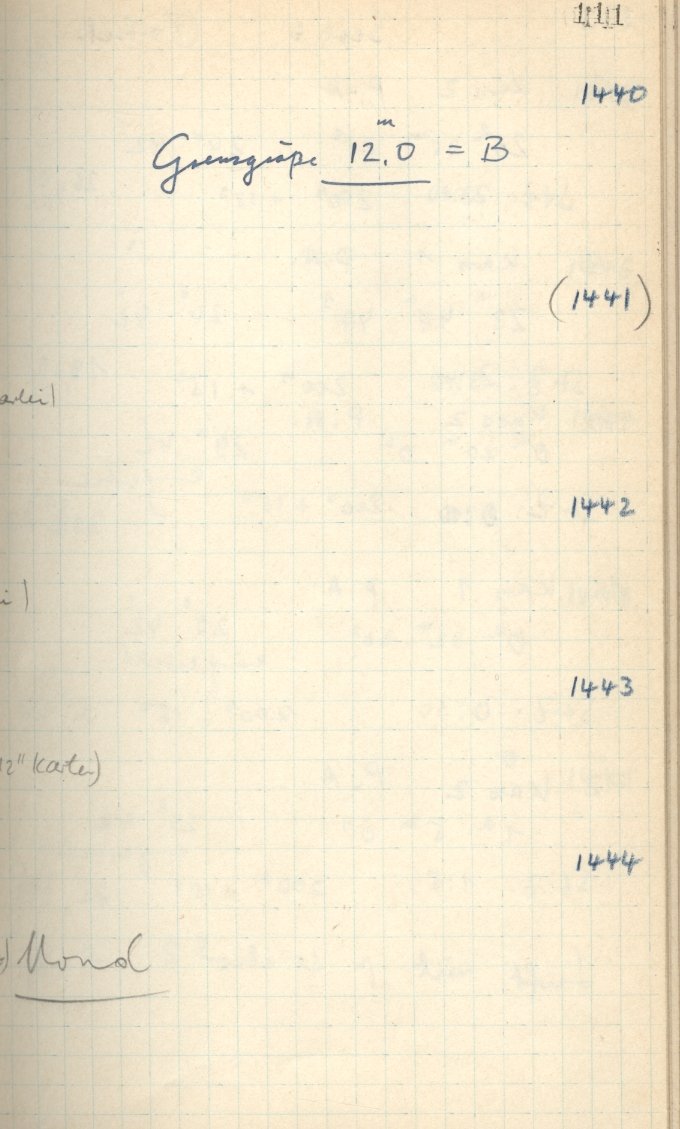 111
1440
Grenzgröße 12ᵐ,0 = B
(1441)
artei)
1442
i)
1443
12" Kartei)
1444
) Mond